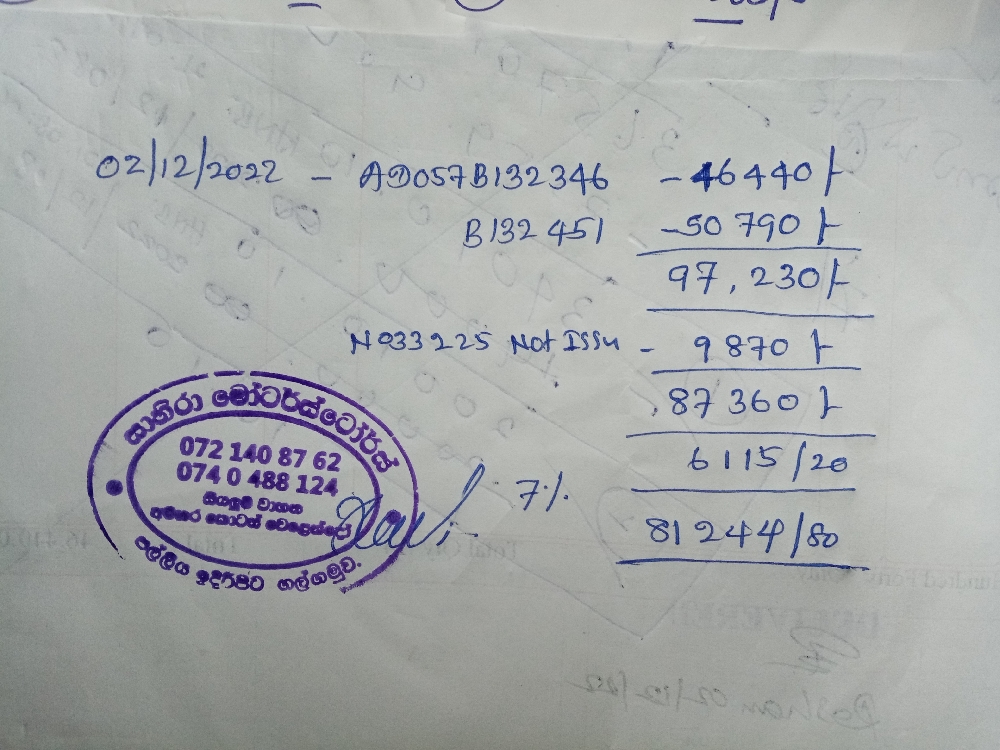 02/12/2022 - AD057B132346 - 46440/-
B132451 - 50790/-
97,230/-
N033225 Not Issu - 9870/-
87360/-
7% 6115/20
81244/80
සාහිරා මෝටර්ස්ටෝර්ස්
072 140 87 62
074 0 488 124
සියළුම වාහන
අමතර කොටස් වෙළෙන්දෝ
පල්ලිය ඉදිරිපිට ගල්ගමුව.